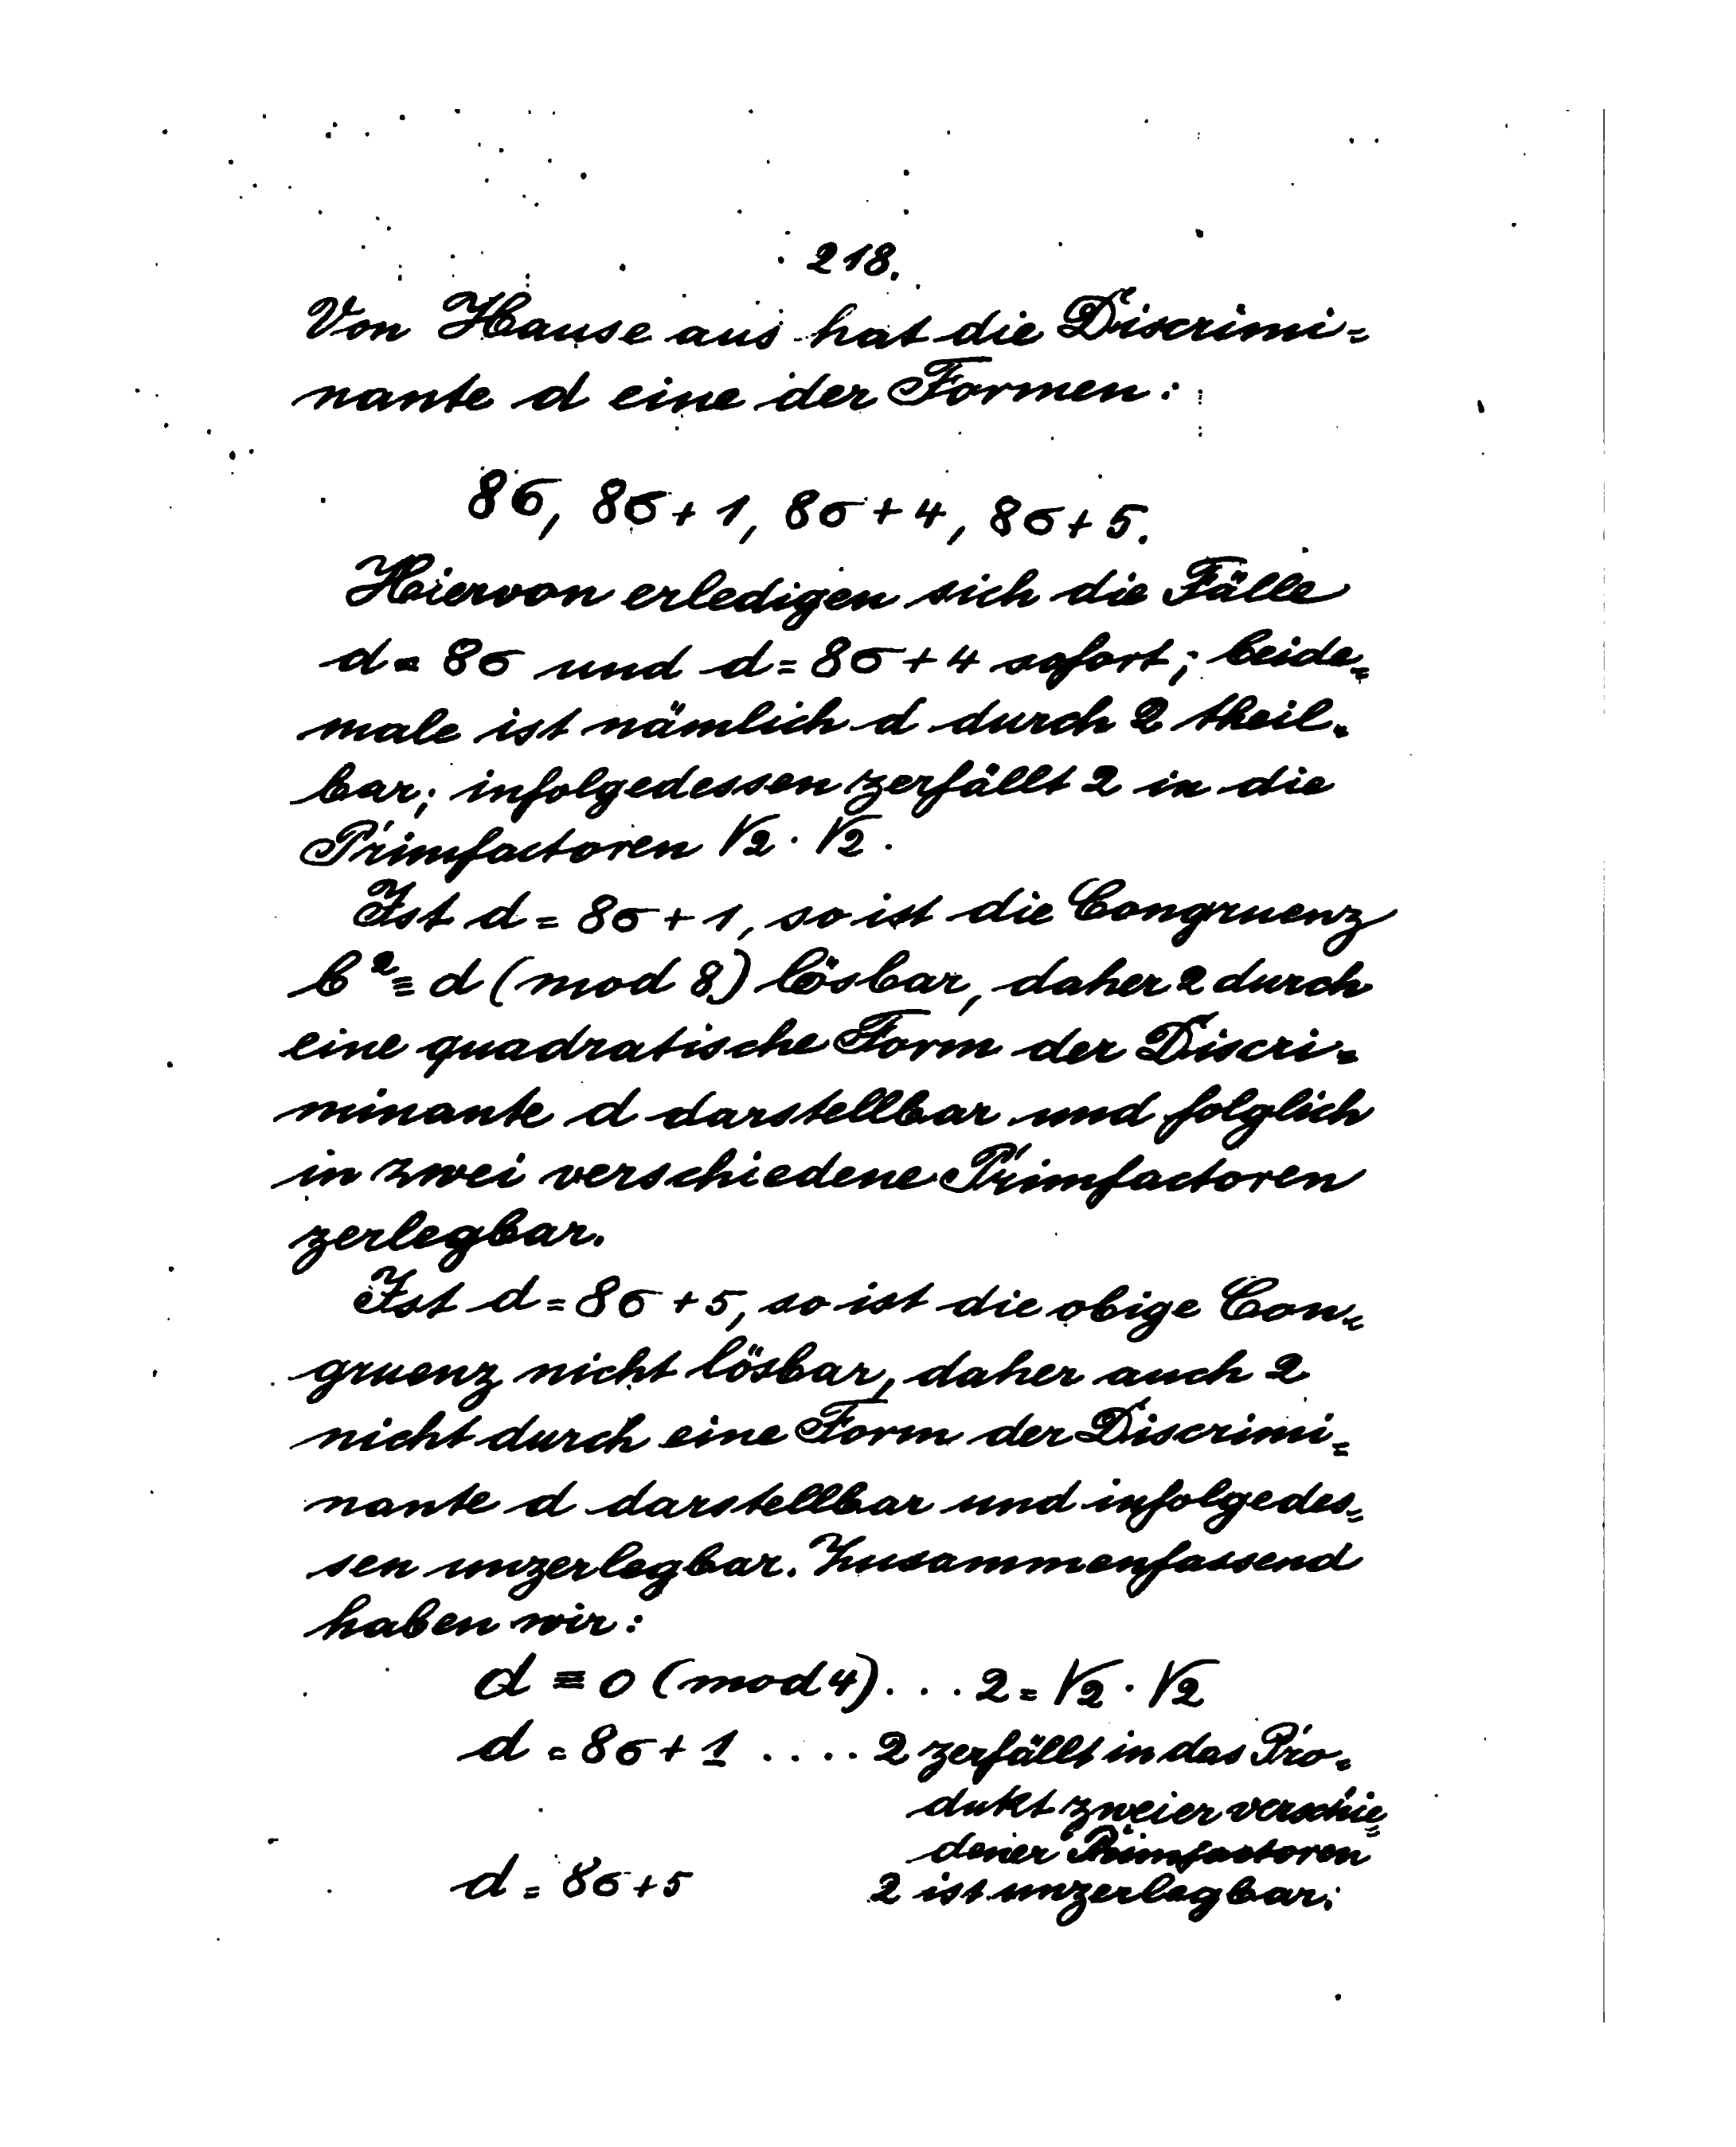 218.
Von Hause aus hat die Discrimi=
nante d eine der Formen:
8σ, 8σ+1, 8σ+4, 8σ+5.
Hiervon erledigen sich die Fälle
d = 8σ und d = 8σ+4 sofort; beide=
male ist nämlich d durch 2 theil=
bar; infolgedessen zerfällt 2 in die
Primfactoren √2 · √2.
Ist d = 8σ+1, so ist die Congruenz
b² ≡ d (mod 8) lösbar, daher 2 durch
eine quadratische Form der Discri=
minante d darstellbar und folglich
in zwei verschiedene Primfactoren
zerlegbar.
Ist d = 8σ+5, so ist die obige Con=
gruenz nicht lösbar, daher auch 2
nicht durch eine Form der Discrimi=
nante d darstellbar und infolgedes=
sen unzerlegbar. Zusammenfassend
haben wir:
d ≡ 0 (mod 4) . . . 2 = √2 · √2
d = 8σ+1 . . . . 2 zerfällt in das Pro=
dukt zweier verschie=
dener Primfactoren
d = 8σ+5 2 ist unzerlegbar.